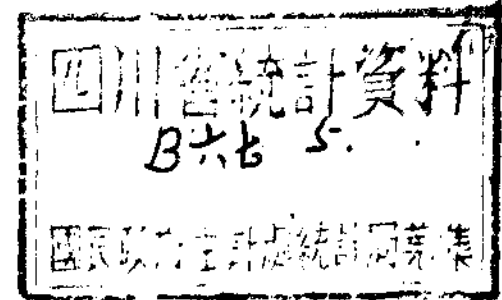 四川省統計資料
B六七 5.
國民政府主計處統計局蒐集